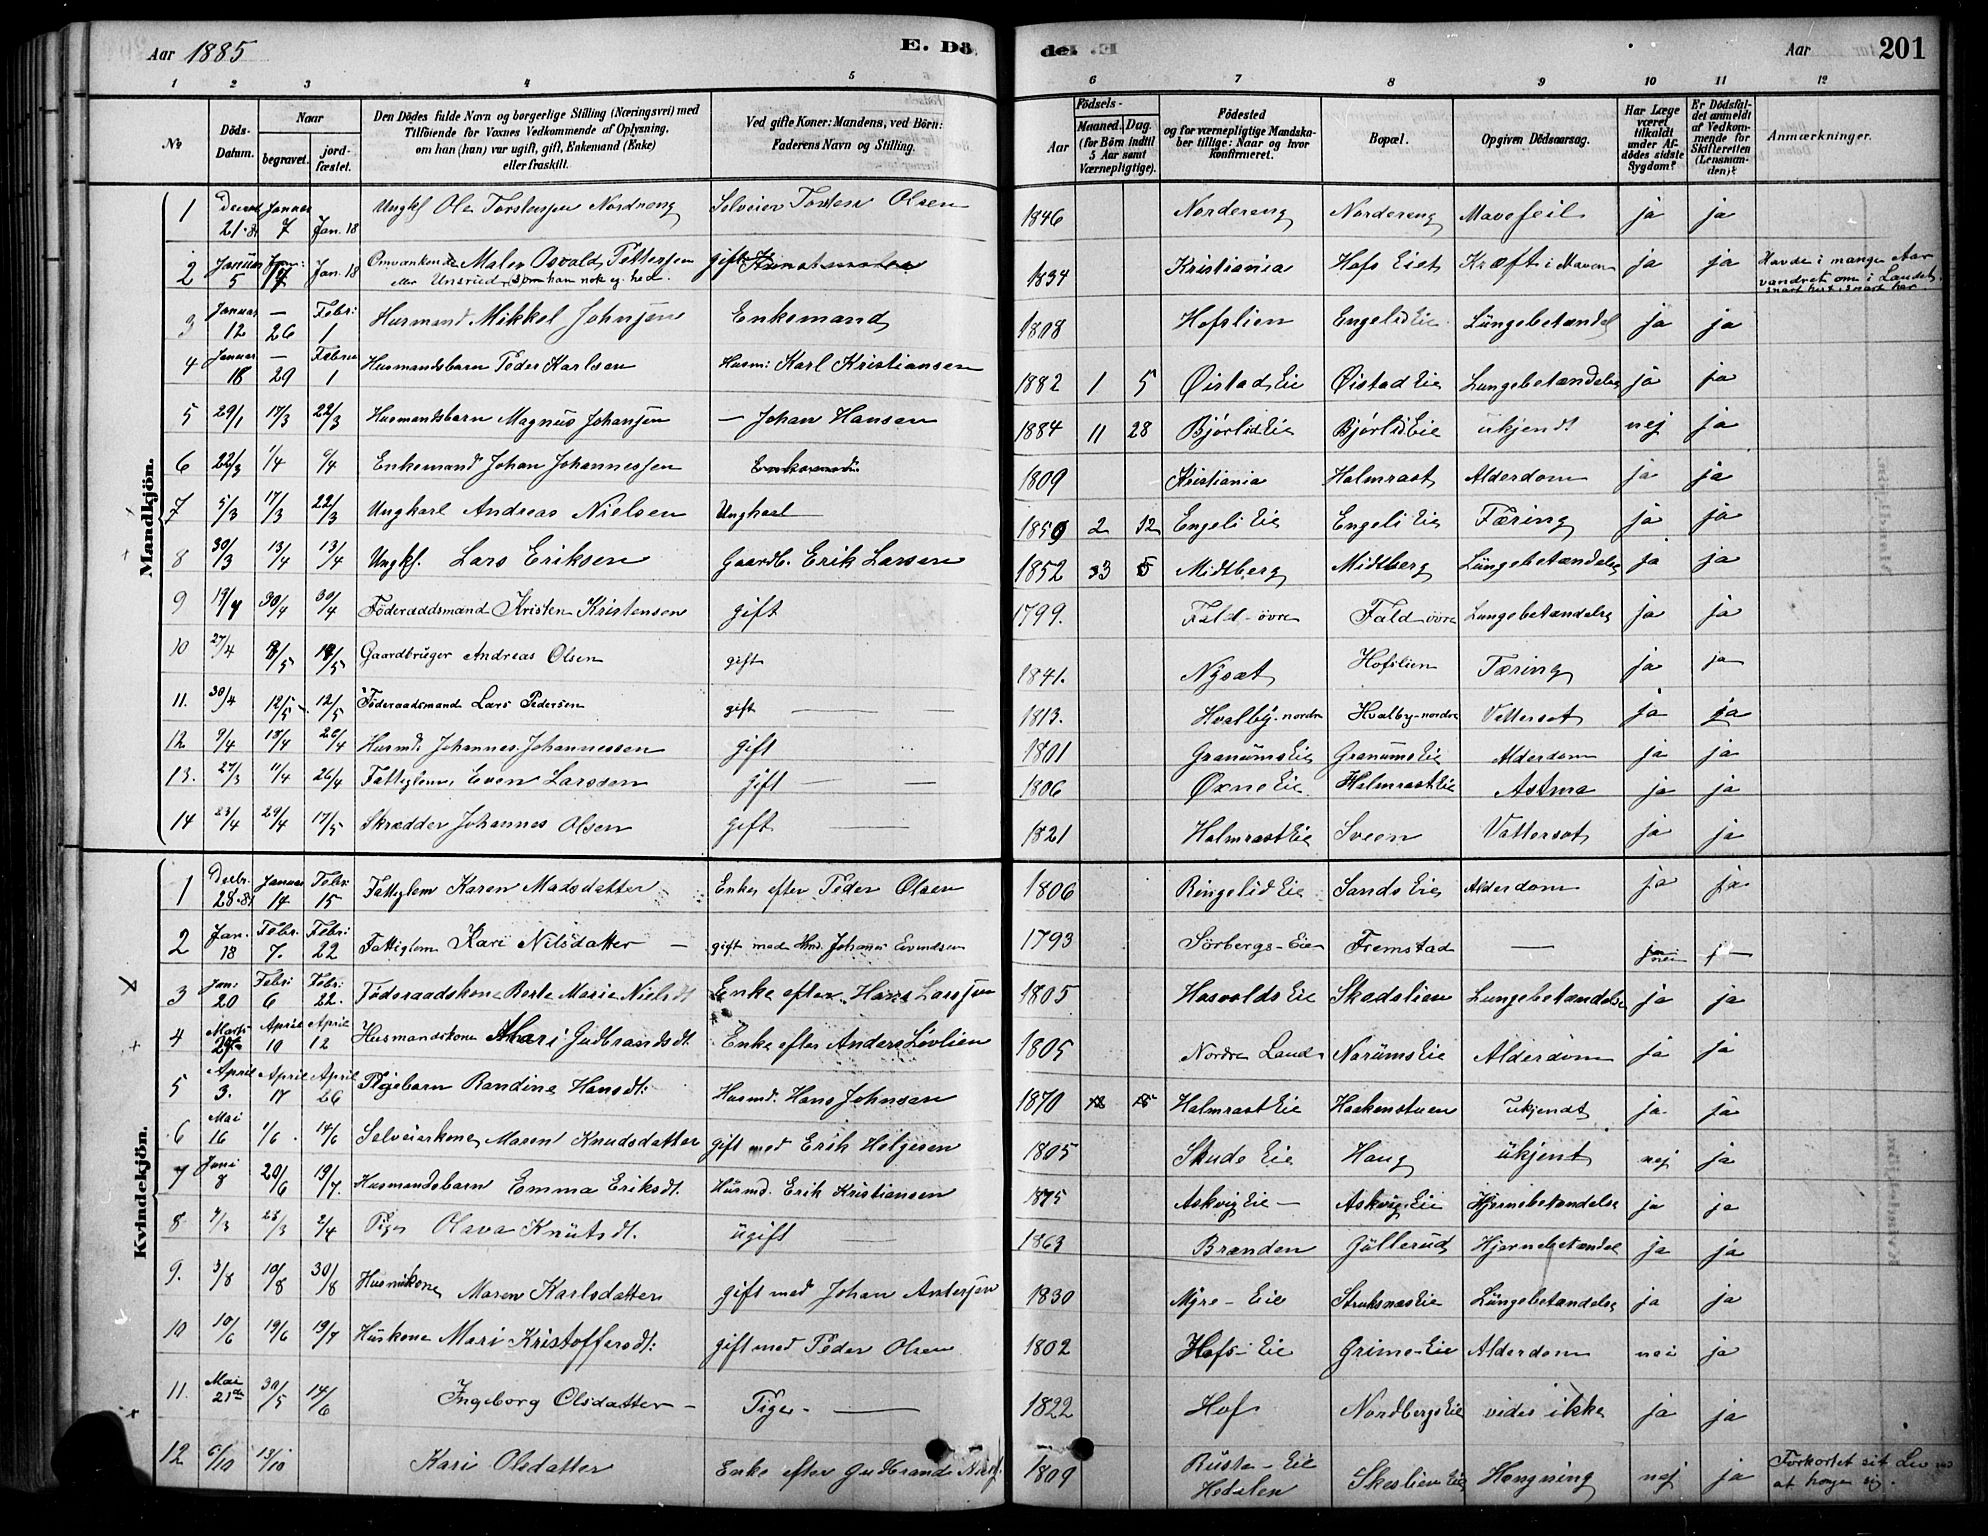 Aar 1885 E. Dö de. Aar 201
1 2 3 4 5 6 7 8 9 10 11 12
No Döds-Datum. Naar begravet. jord-fæstet. Den Dödes fulde Navn og borgerlige Stilling (Næringsvei) med Tilföiende for Voxnes Vedkommende af Oplysning, om han (hun) var ugift, gift, Enkemand (Enke) eller fraskilt. Ved gifte Koner: Mandens, ved Börn: Faderens Navn og Stilling. Aar Födsels- Maaned. Dag. (for Börn indtil 5 Aar samt Værnepligtige). Födested og for værnepligtige Mandska-ber tillige: Naar og hvor konfirmeret. Bopæl. Opgiven Dödsaarsag. Har Læge været tilkaldt under Af-dödes sidste Sygdom? Er Dödsfal-det anmeldt af Vedkom-mende for Skifteretten (Lensman-den)? Anmærkninger.
Mandkjön.
1 21 Januar 7 Jan. 18 Ungkl Ole Torstensen Nordreng Selveier Torsten Olsen 1846 Nordereng Nordereng Mavefeil ja ja
2 Januar 5 Jan. 18 Omvankende Maler Osvald Pettersen gift 1834 Kristiania Hofs Eiet Kræft i Maven ja ja Havde i mange Aar
eller Unsrud, som han nok eg. hed. vandret om i Landet, snart hist, snart her
3 Januar 12 — 26 Febr: 1 Husmand Mikkel Johnsen Enkemand 1808 Hofslien Engelid Eie Lüngebetændel ja ja
4 Januar 18 — 29 Febru 1 Husmandsbarn Peder Karlsen Husm: Karl Kristiansen 1882 1 5 Øistad Eie Øistad Eie Lungebetændelse ja ja
5 29/1 17/3 22/3 Husmandsbarn Magnus Johansen — Johan Hansen 1884 11 28 Bjørlid Eie Bjørlid Eie ukjendt nej ja
6 22/3 1/4 6/4 Enkemand Johan Johannessen Enkemand 1809 Kristiania Halmrast Alderdom ja ja
7 5/3 17/3 22/3 Ungkarl Andreas Nielsen Ungkarl 1859 2 12 Engeli Eie Engeli Eie Tæring ja ja
8 30/3 13/4 13/4 Ungkl. Lars Eriksen Gaardb. Erik Larsen 1852 3 5 Midtberg Midtberg Lüngebetændelse ja ja
9 19/4 30/4 30/4 Föderaadsmand Kristen Kristensen gift 1799. Fald-övre Fald övre Lungebetændelse ja ja
10 27/4 8/5 18/5 Gaardbruger Andreas Olsen gift 1841. Nysæt Hofslien Tæring ja ja
11. 30/4 12/5 12/5 Föderaadsmand Lars Pedersen gift — — 1813. Hvalby-nordre Hvalby-nordre Vattersot ja ja
12 9/4 18/4 26/4 Husmd. Johannes Johannessen gift 1801 Granums Eie Granums Eie Alderdom ja ja
13. 27/3 11/4 26/4 Fattiglem Even Larssen gift — — 1806 Øxne Eie Halmrast Eie Astma ja ja
14 23/4 29/4 17/5 Skrædder Johannes Olsen gift — 1821 Halmrast Eie Sveen Vattersot ja ja
Kvindekjön.
1 Decbr. 28. Januar 14 Febr: 15 Fattiglem Karen Madsdatter Enke efter Peder Olsen 1806 Ringelid Eie Sands Eie Alderdom ja ja
2 Jan. 18 Febr. 7. Febr: 22 Fattiglem Kari Nilsdatter — gift med Hmd. Johanes Evendsen 1793 Sörbergs-Eie Fremstad — nei ja
3 Jan: 20 Febr: 6 Febr: 22. Föderaadskone Berte Marie Nielsdt Enke efter Hans Larssen 1805 Hasvolds Eie Skadslien Lungebetændelse ja ja
4 Marts April 10 April 12 Husmandskone Mari Gudbrandsdt. Enke efter Anders Lövlien 1805 Nordre Land Narums Eie Alderdom ja ja
5 April 3. April 17 April 26 Pigebarn Randine Hansdt: Husmd. Hans Johnsen 1870 Halmrast Eie Haakenstuen ukjendt ja ja
6 Mai 16 1/6 14/6 Selveierkone Maren Knudsdatter gift med Erik Helgesen 1805 Skude Eie Haug ukjent nej ja
7 Juni 8 20/6 19/7. Husmandsbarn Emma Eriksdt. Husmd. Erik Kristiansen 1875 Askvig Eie — Askvig Eie Hjernebetændelse ja ja
8 4/3 23/3 2/4 Pige Olava Knutsdt. ugift — 1863 Branden Güllerud Hjernebetændel ja ja
9. 3/8 10/8 30/8 Husmkone Maren Karlsdatter gift med Johan Andersen 1830 Myre-Eie Struksnæs Eie Lüngebetændelse ja ja
10 10/6 19/6 19/7 Huskone Mari Kristoffersdt: gift med Peder Olsen 1802 Hofs-Eie Grime-Eie Alderdom nei ja
11. Mai 21de 30/5 14/6 Ingeborg Olsdatter — Pige. — 1822 Hof Nordbergs Eie vides ikke ja ja
12 6/10 13/10 Kari Olsdatter Enke efter Gudbrand 1809 Rüste-Eie Hedalen Skeslien Eie Hængning nej ja Forkortet sit Liv ved
at hænge sig.